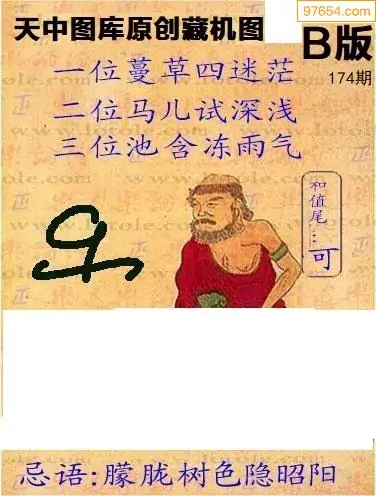 97654.com
天中图库原创藏机图
B版
174期
一位蔓草四迷茫
二位马儿试深浅
三位池含冻雨气
和值尾
...
可
忌语:朦胧树色隐昭阳